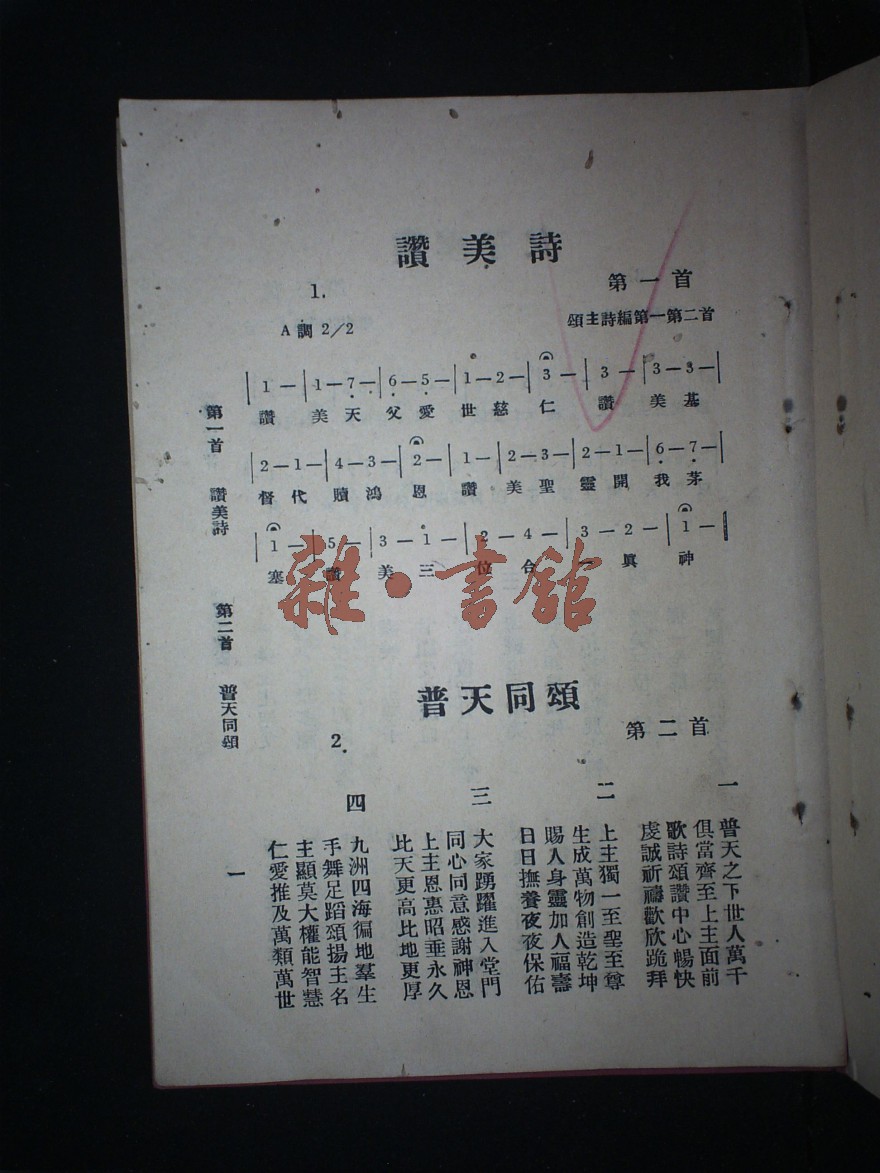 讚美詩
第一首
1.
頌主詩編第一第二首
A調 2/2
|1—|1—7—|6—5—|1—2—|3—|3—|3—3—|
讚美天父愛世慈仁讚美基
|2—1—|4—3—|2—|1—|2—3—|2—1—|6—7—|
督代贖鴻恩讚美聖靈開我茅
|1—|5—|3—1—|2—4—|3—2—|1—|
塞讚美三位合真神
雜·書館
普天同頌
第二首
2.
一
普天之下世人萬千
俱當齊至上主面前
歌詩頌讚中心暢快
虔誠祈禱歡欣跪拜
二
上主獨一至聖至尊
生成萬物創造乾坤
賜人身靈加人福壽
日日撫養夜夜保佑
三
大家踴躍進入堂門
同心同意感謝神恩
上主恩惠昭垂永久
比天更高比地更厚
四
九洲四海徧地羣生
手舞足蹈頌揚主名
主顯莫大權能智慧
仁愛推及萬類萬世
第一首 讚美詩 第二首 普天同頌
一